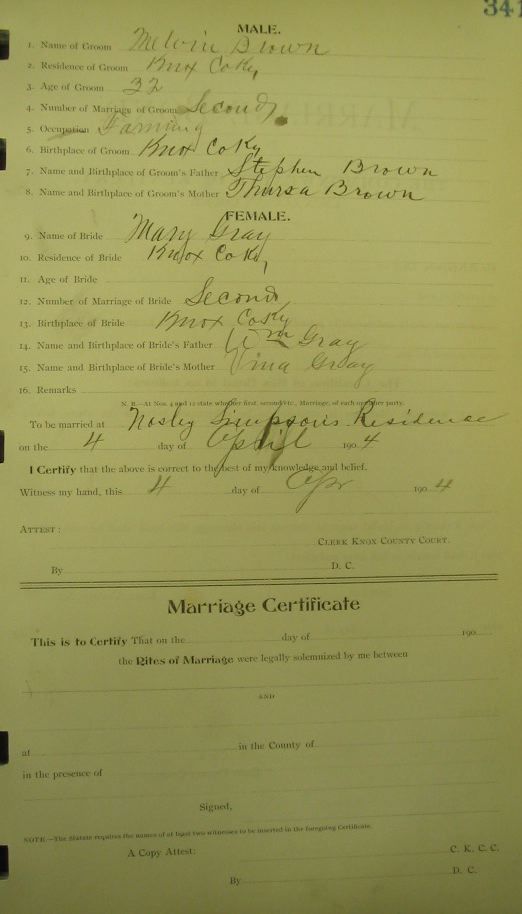 341
MALE.
1. Name of Groom Melvin Brown
2. Residence of Groom Knox Co Ky
3. Age of Groom 32
4. Number of Marriage of Groom Second
5. Occupation Farming
6. Birthplace of Groom Knox Co Ky
7. Name and Birthplace of Groom's Father Stephen Brown
8. Name and Birthplace of Groom's Mother Thursa Brown
FEMALE.
9. Name of Bride Mary Gray
10. Residence of Bride Knox Co Ky
11. Age of Bride
12. Number of Marriage of Bride Second
13. Birthplace of Bride Knox Co Ky
14. Name and Birthplace of Bride's Father Wm Gray
15. Name and Birthplace of Bride's Mother Vina Gray
16. Remarks
N. B.—At Nos. 4 and 12 state whether first, second, etc., Marriage, of each party.
To be married at Simpson's Residence
on the 4 day of April 1904
I Certify that the above is correct to the best of my knowledge and belief.
Witness my hand, this 4 day of Apr 1904
ATTEST:
CLERK KNOX COUNTY COURT.
By D. C.
Marriage Certificate
This is to Certify That on the day of 190
the Rites of Marriage were legally solemnized by me between
AND
at in the County of
in the presence of
Signed,
NOTE.—The Statute requires the names of at least two witnesses to be inserted in the foregoing Certificate.
A Copy Attest: C. K. C. C.
By D. C.